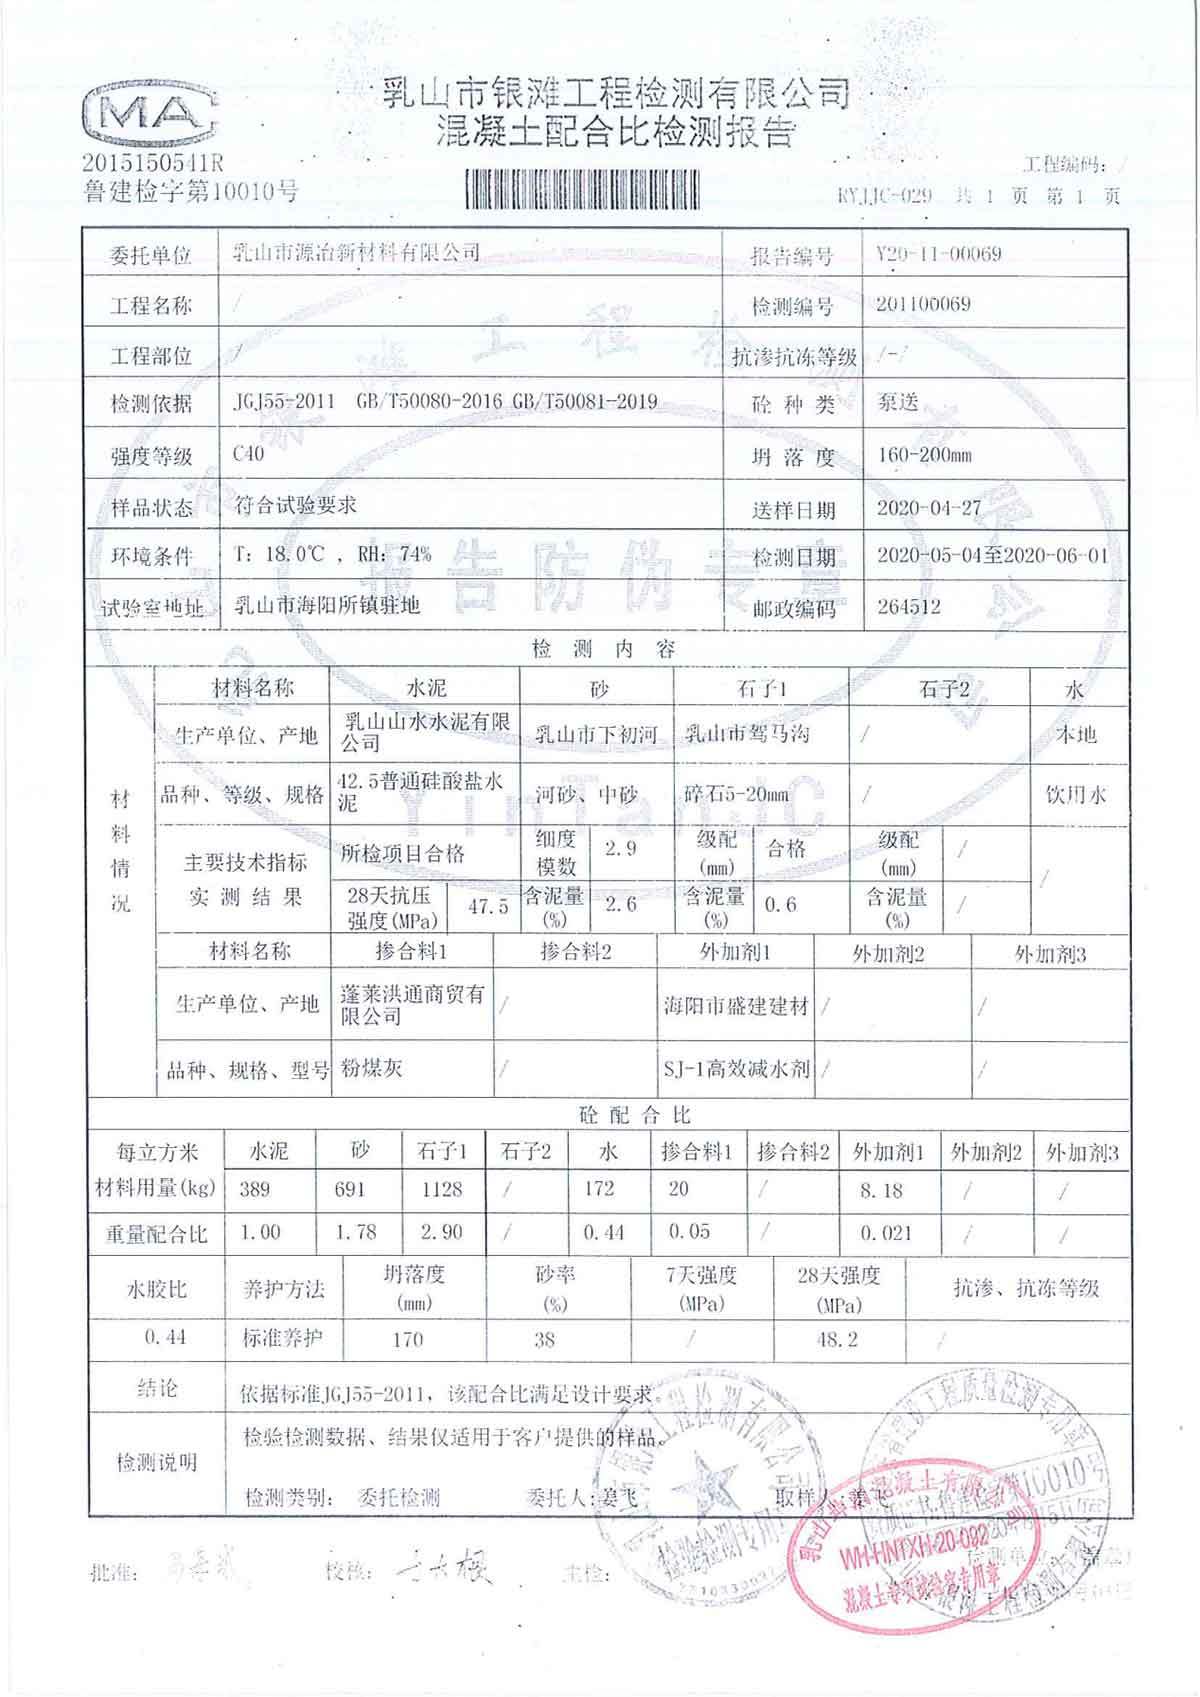 乳山市银滩工程检测有限公司
混凝土配合比检测报告
CMA
2015150541R
鲁建检字第10010号
工程编码: /
RYJJC-029 共 1 页 第 1 页
委托单位 乳山市源冶新材料有限公司 报告编号 Y20-11-00069
工程名称 / 检测编号 201100069
工程部位 / 抗渗抗冻等级 /-/
检测依据 JGJ55-2011 GB/T50080-2016 GB/T50081-2019 砼 种 类 泵送
强度等级 C40 坍 落 度 160-200mm
样品状态 符合试验要求 送样日期 2020-04-27
环境条件 T: 18.0℃ , RH: 74% 检测日期 2020-05-04至2020-06-01
试验室地址 乳山市海阳所镇驻地 邮政编码 264512
报告防伪专章
YinTanJC
检 测 内 容
材料情况
材料名称 水泥 砂 石子1 石子2 水
生产单位、产地 乳山山水水泥有限公司 乳山市下初河 乳山市驾马沟 / 本地
品种、等级、规格 42.5普通硅酸盐水泥 河砂、中砂 碎石5-20mm / 饮用水
主要技术指标 所检项目合格 细度模数 2.9 级配(mm) 合格 级配(mm) / /
实 测 结 果 28天抗压强度(MPa) 47.5 含泥量(%) 2.6 含泥量(%) 0.6 含泥量(%) /
材料名称 掺合料1 掺合料2 外加剂1 外加剂2 外加剂3
生产单位、产地 蓬莱洪通商贸有限公司 / 海阳市盛建建材 / /
品种、规格、型号 粉煤灰 / SJ-1高效减水剂 / /
砼 配 合 比
每立方米 水泥 砂 石子1 石子2 水 掺合料1 掺合料2 外加剂1 外加剂2 外加剂3
材料用量(kg) 389 691 1128 / 172 20 / 8.18 / /
重量配合比 1.00 1.78 2.90 / 0.44 0.05 / 0.021 / /
水胶比 养护方法 坍落度(mm) 砂率(%) 7天强度(MPa) 28天强度(MPa) 抗渗、抗冻等级
0.44 标准养护 170 38 / 48.2 /
结论 依据标准JGJ55-2011, 该配合比满足设计要求。
检测说明 检验检测数据、结果仅适用于客户提供的样品。
检测类别: 委托检测 委托人:姜飞 取样人:姜飞
批准: 校核: 主检:
WH-HNTXH-20-092
混凝土专项试验室专用章